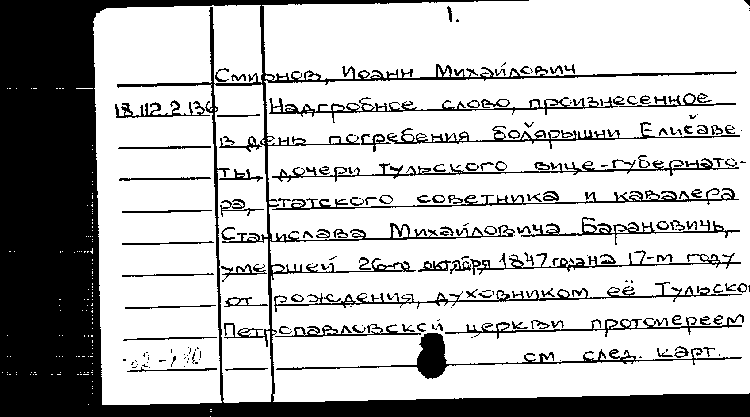 1.
Смирнов, Иоанн Михайлович
18.112.2.136 Надгробное слово, произнесенное
в день погребения боярышни Елисаве-
ты, дочери тульского вице-губернато-
ра, статского советника и кавалера
Станислава Михайловича Барановичь,
умершей 26-го октября 1847 года на 17-м году
от рождения, духовником её Тульско
Петропавловской церкви протоиереем
см след. карт.